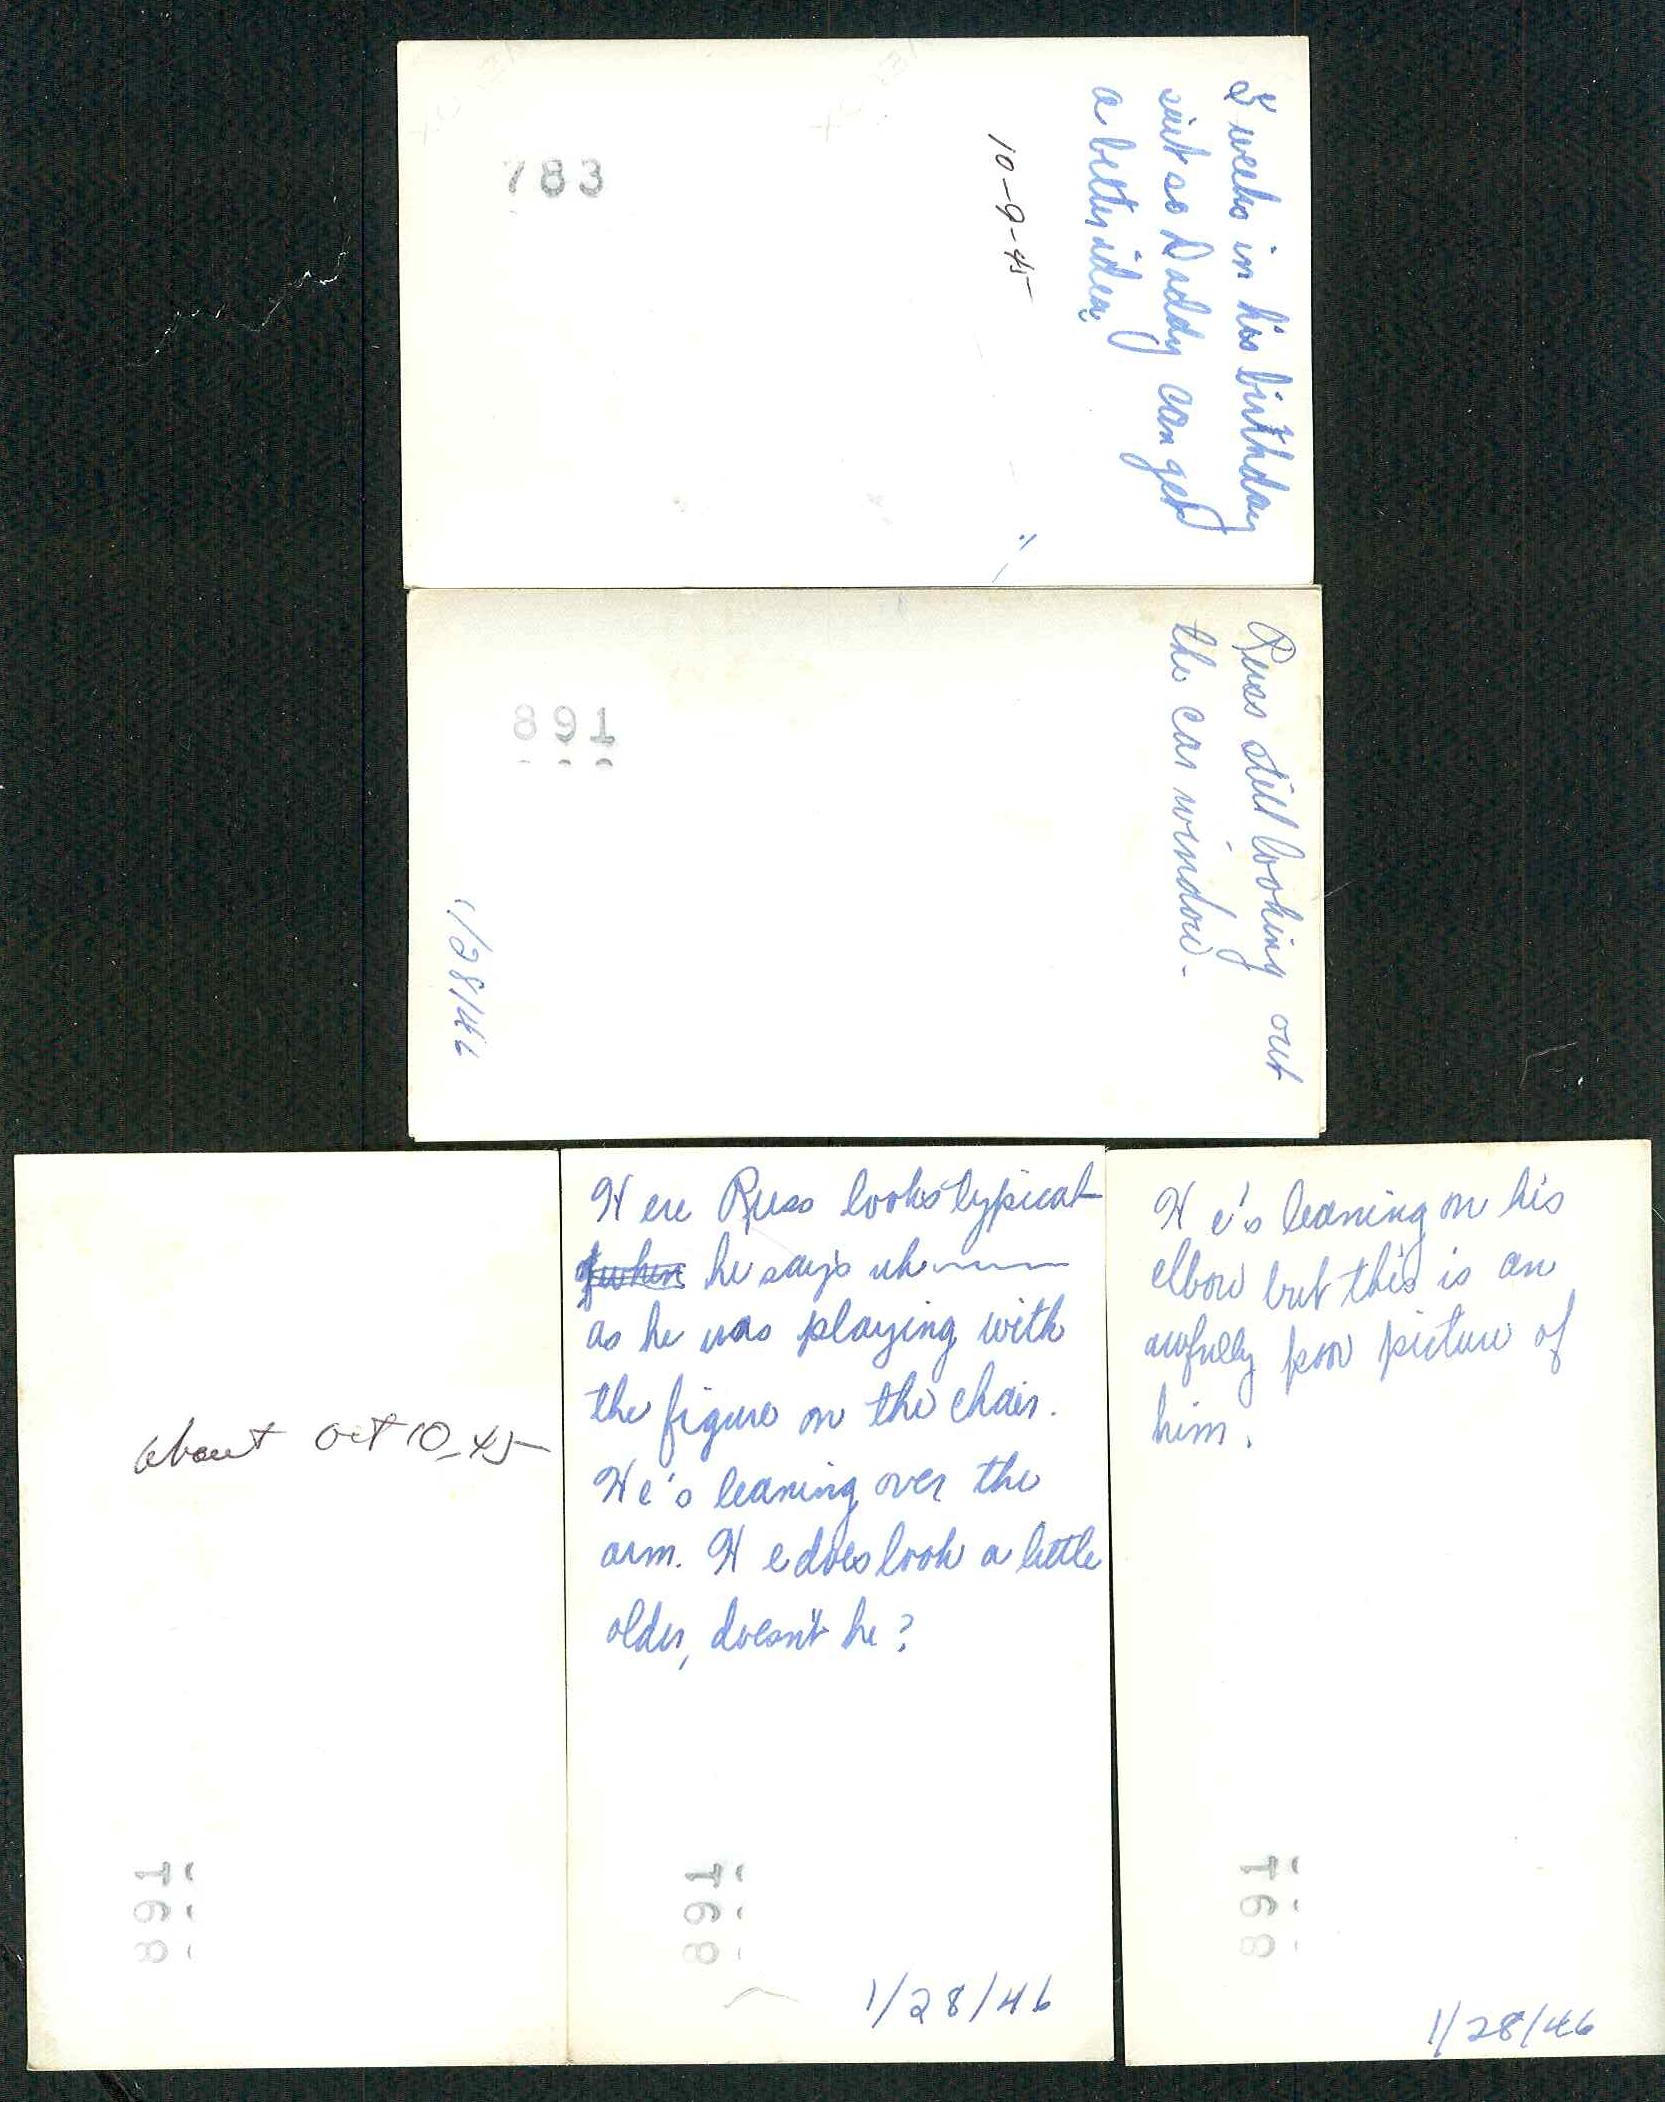 weeks in his birthday
suit so Daddy can get
a better idea.
10-9-45
783
Russ still looking out
the car window-
891
1/28/46
about Oct 10-45
891
Here Russ looks typical
he says uh
as he was playing with
the figure on the chair.
He's leaning over the
arm. He does look a little
older, doesn't he?
891
1/28/46
He's leaning on his
elbow but this is an
awfully poor picture of
him.
891
1/28/46